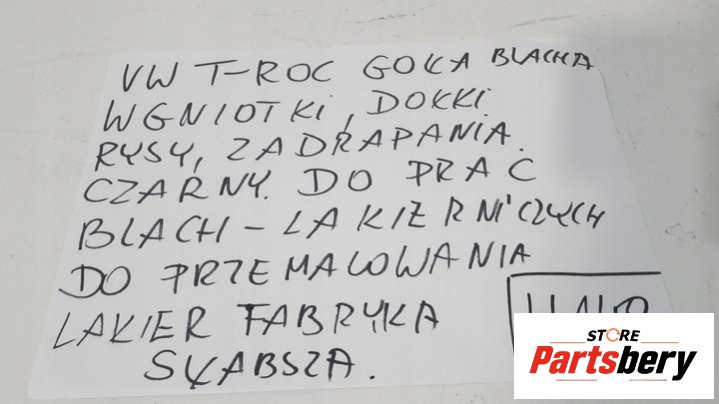 VW T-ROC GOŁA BLACHA
WGNIOTKI, DOŁKI
RYSY, ZADRAPANIA.
CZARNY. DO PRAC
BLACH-LAKIERNICZYCH
DO PRZEMALOWANIA
LAKIER FABRYKA
SŁABSZA.
STORE
Partsbery